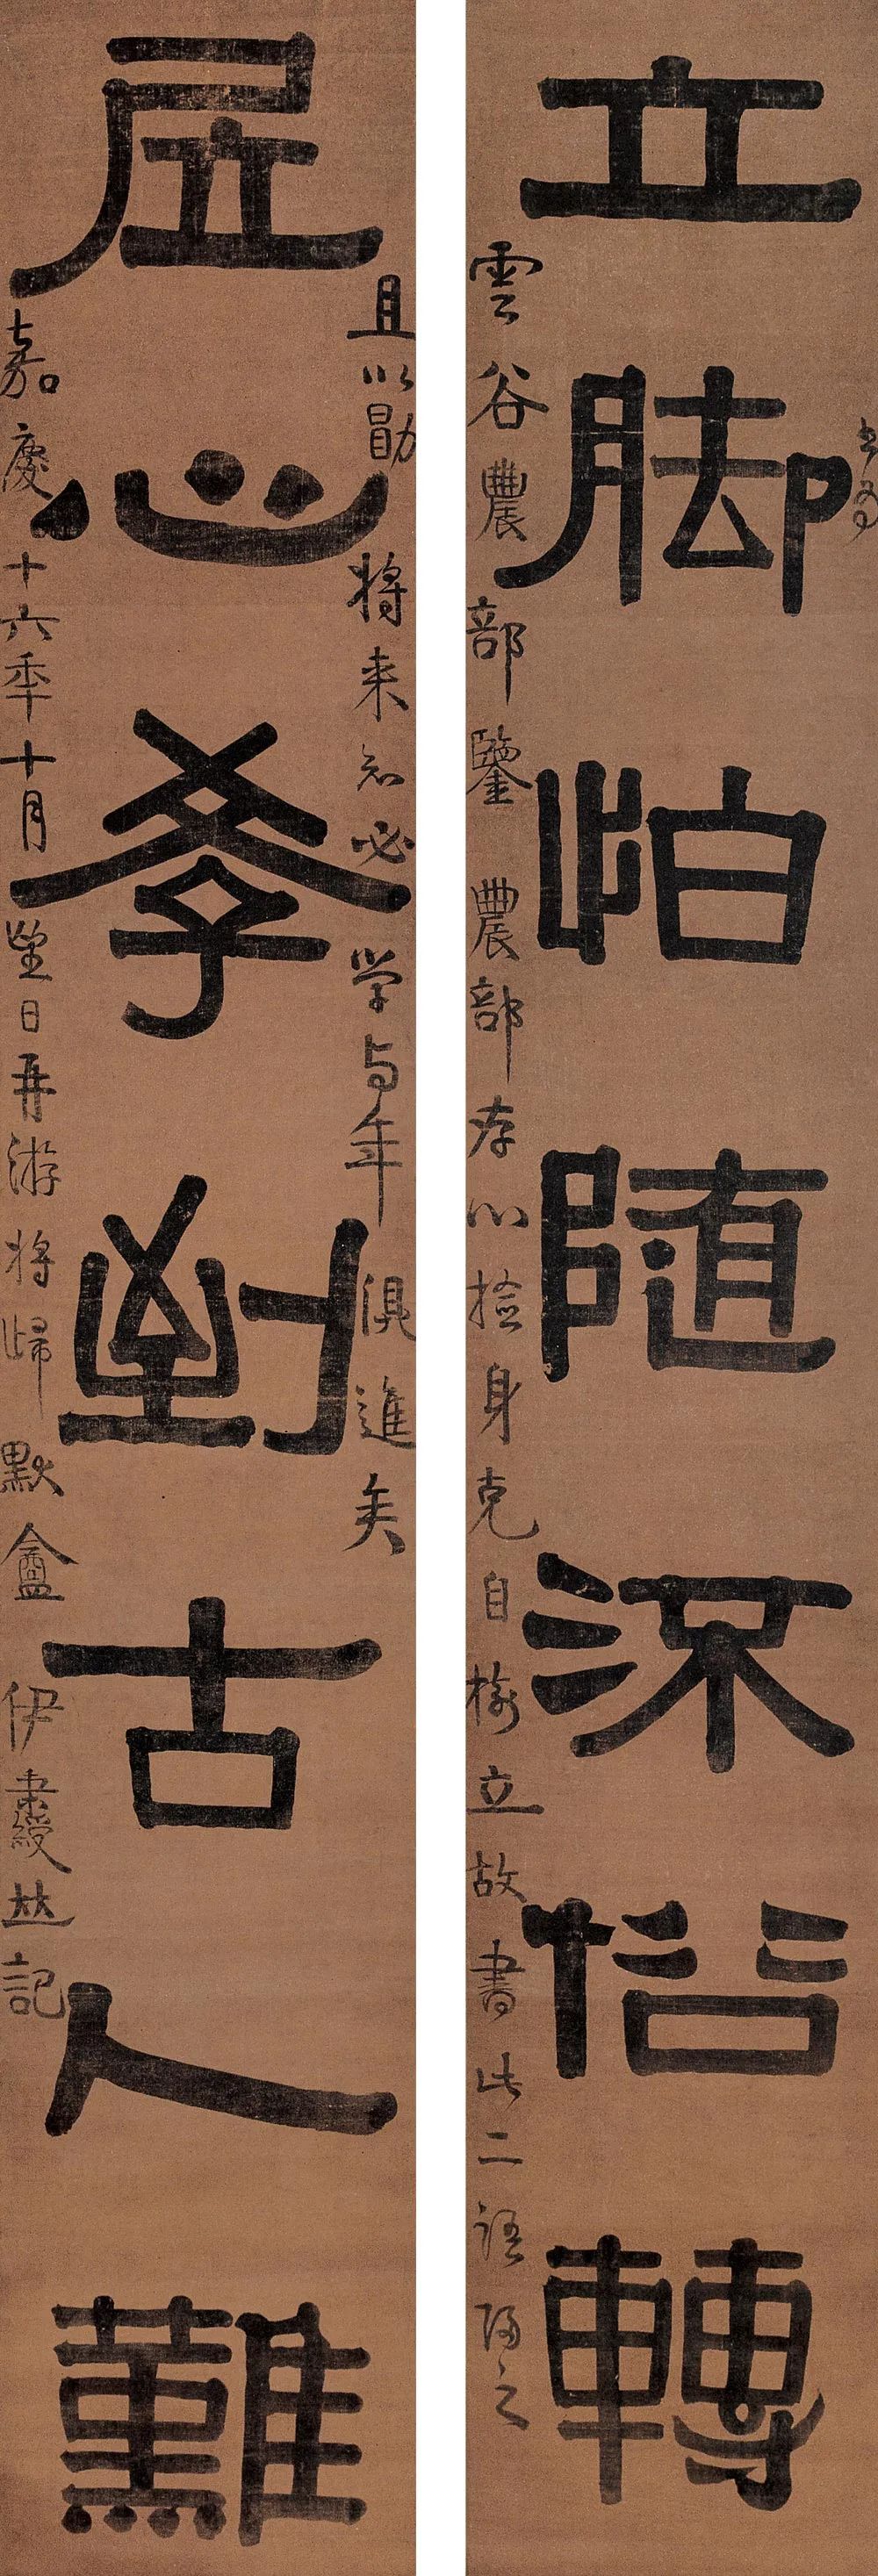 立脚怕随流俗轉
雲谷農部鑒 農部存心撿身克自樹立故書此二語之
居心學到古人難
且以勖將来知必学与年俱進矣
嘉慶十六年十月望日再游將歸默盦伊秉綬並記